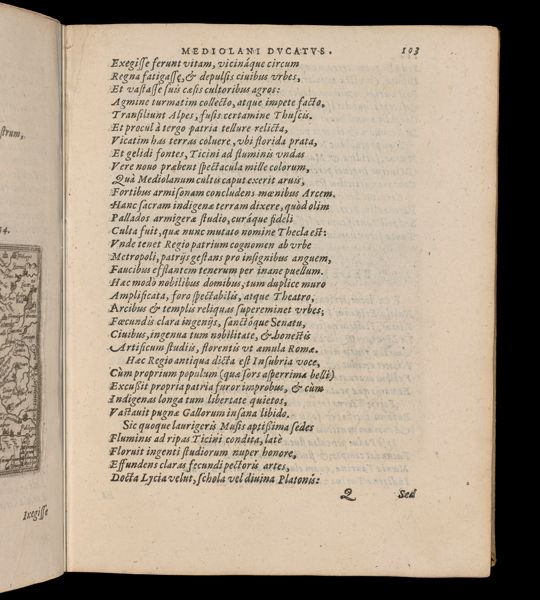 strum,
34.
Exegisse
MEDIOLANI DVCATVS. 103
Exegisse ferunt vitam, vicináque circum
Regna fatigasse, & depulsis ciuibus vrbes,
Et vastasse suis cæsis cultoribus agros:
Agmine turmatim collecto, atque impete facto,
Transiliunt Alpes, fusis certamine Thuscis.
Et procul à tergo patria tellure relicta,
Vicatim has terras coluere, vbi florida prata,
Et gelidi fontes, Ticini ad fluminis vndas
Vere nouo præbent spectacula mille colorum,
Quà Mediolanum cultis caput exerit aruis,
Fortibus armisonam concludens mœnibus Arcem.
Hanc sacram indigenæ terram dixere, quòd olim
Pallados armigeræ studio, curáque fideli
Culta fuit, quæ nunc mutato nomine Thecla est:
Vnde tenet Regio patrium cognomen ab vrbe
Metropoli, patrijs gestans pro insignibus anguem,
Faucibus efflantem tenerum per inane puellum.
Hæc modò nobilibus domibus, tum duplice muro
Amplificata, foro spectabilis, atque Theatro,
Arcibus & templis reliquas supereminet vrbes;
Fœcundis clara ingenijs, sanctóque Senatu,
Ciuibus, ingenua tum nobilitate, & honestis
Artificum studiis, florentis vt æmula Romæ.
Hæc Regio antiqua dicta est Insubria voce,
Cùm proprium populum (quæ sors asperrima belli)
Excussit propria patria furor improbus, & cùm
Indigenas longa tum libertate quietos,
Vastauit pugnæ Gallorum insana libido.
Sic quoque laurigeris Musis aptissima sedes
Fluminis ad ripas Ticini condita, latè
Floruit ingenti studiorum nuper honore,
Effundens claras fecundi pectoris artes,
Docta Lycia velut, schola vel diuina Platonis:
Q Sed